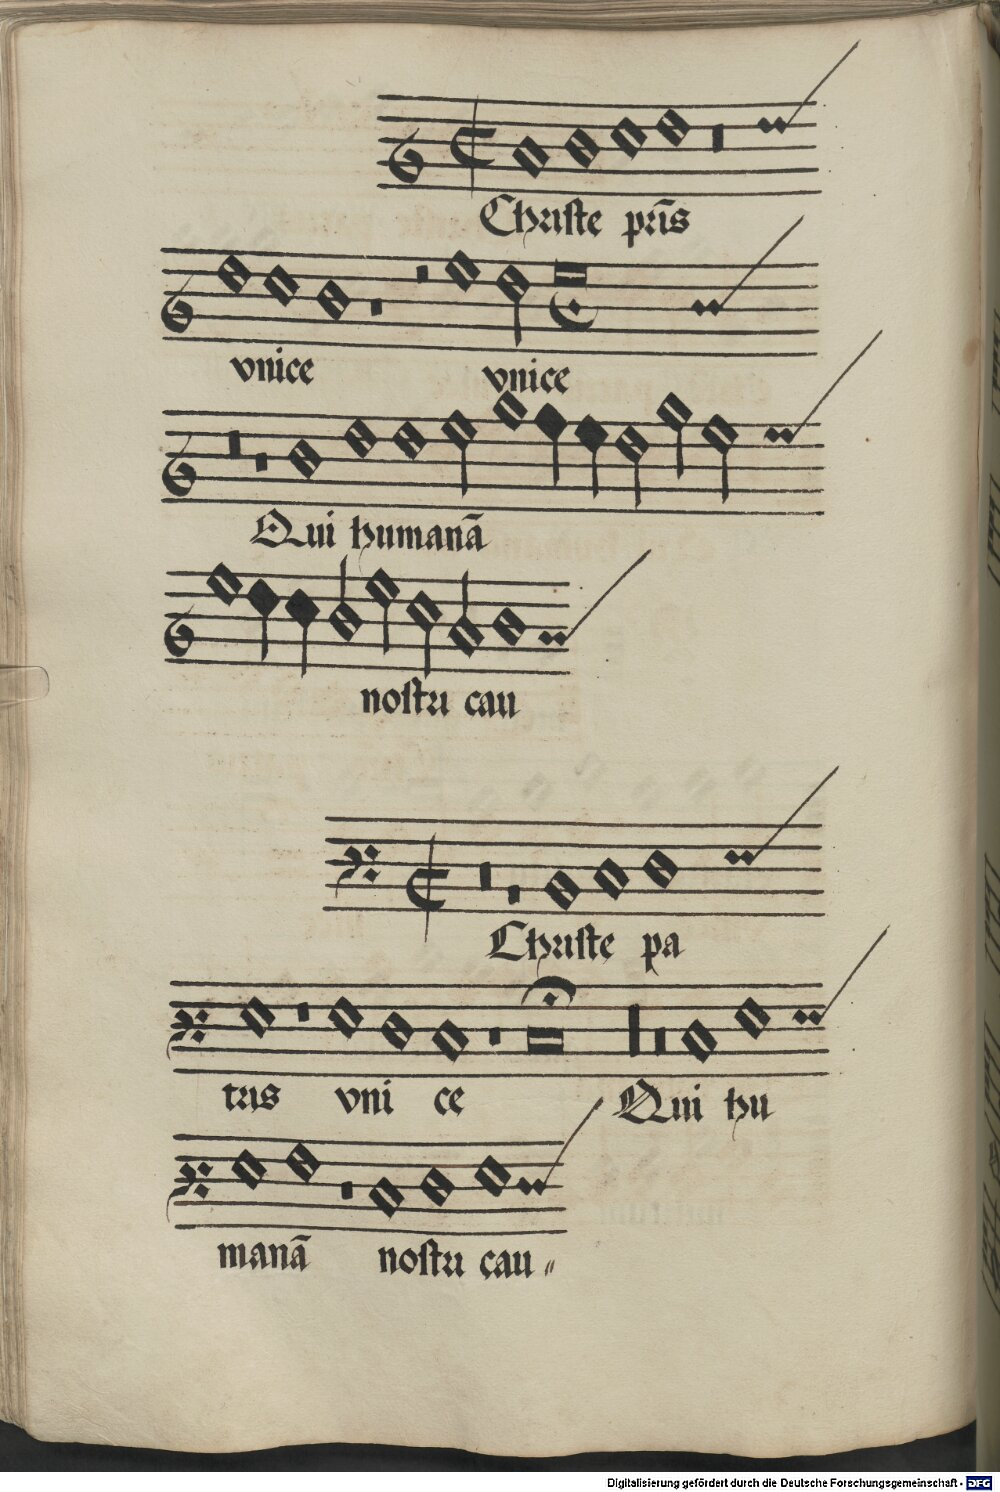 Christe pr̃is
vnice vnice
Qui humanã
nostri cau
Christe pa
tris vni ce Qui hu
manã nostri cau〃
Digitalisierung gefördert durch die Deutsche Forschungsgemeinschaft - DFG